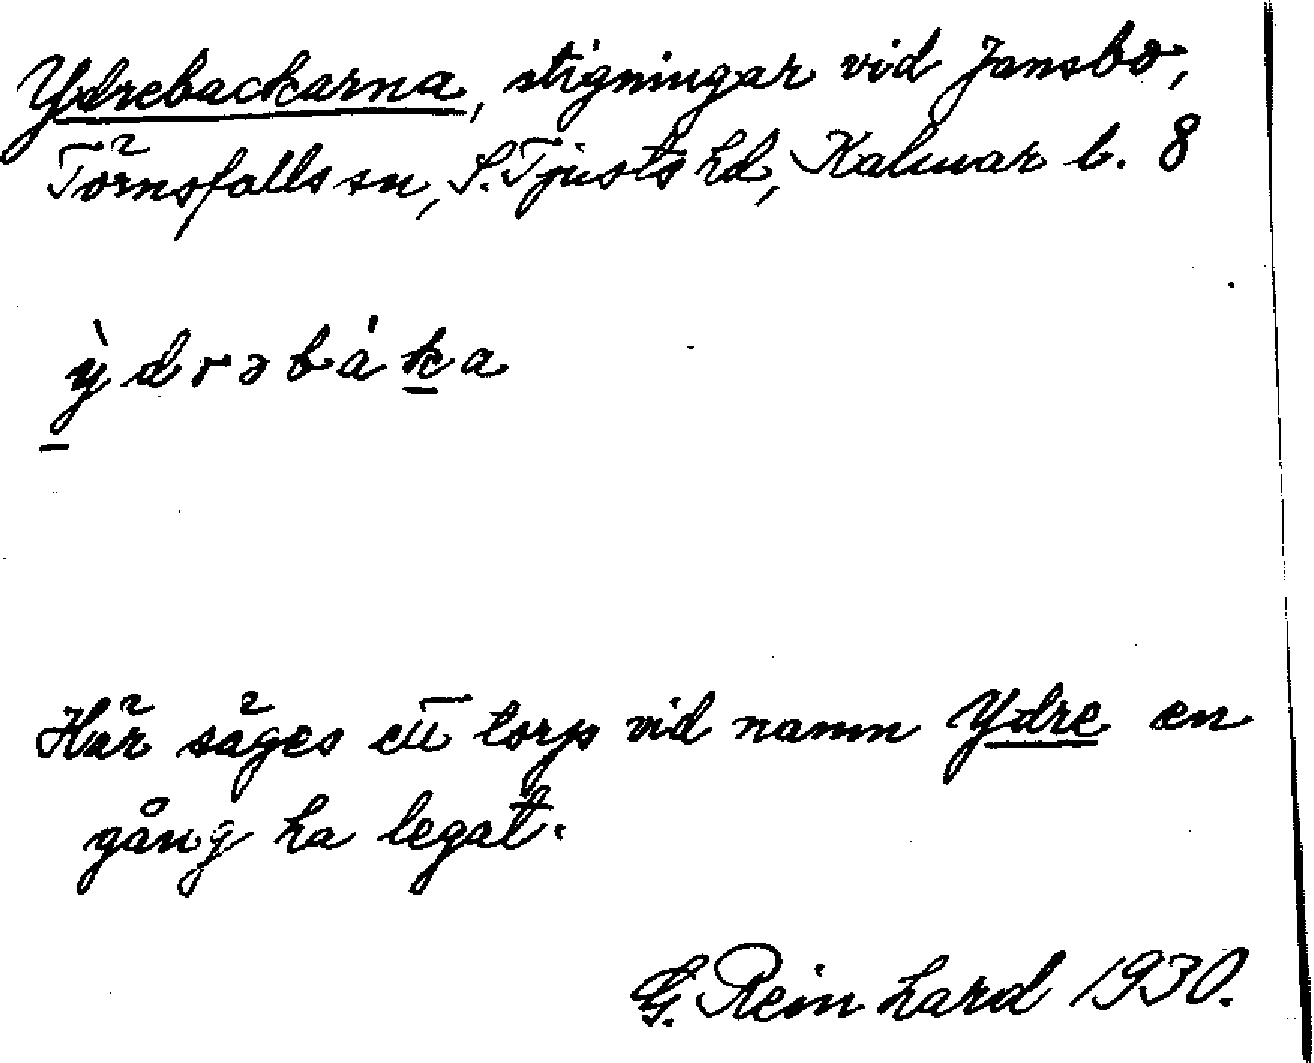 Ydrebackarna, stigningar vid Jansbo,
Törnsfalls sn, S. Tjusts hd, Kalmar l. 8
ỳdrəbáka
Här säges ett torp vid namn Ydre en
gång ha legat.
G. Reinhard 1930.